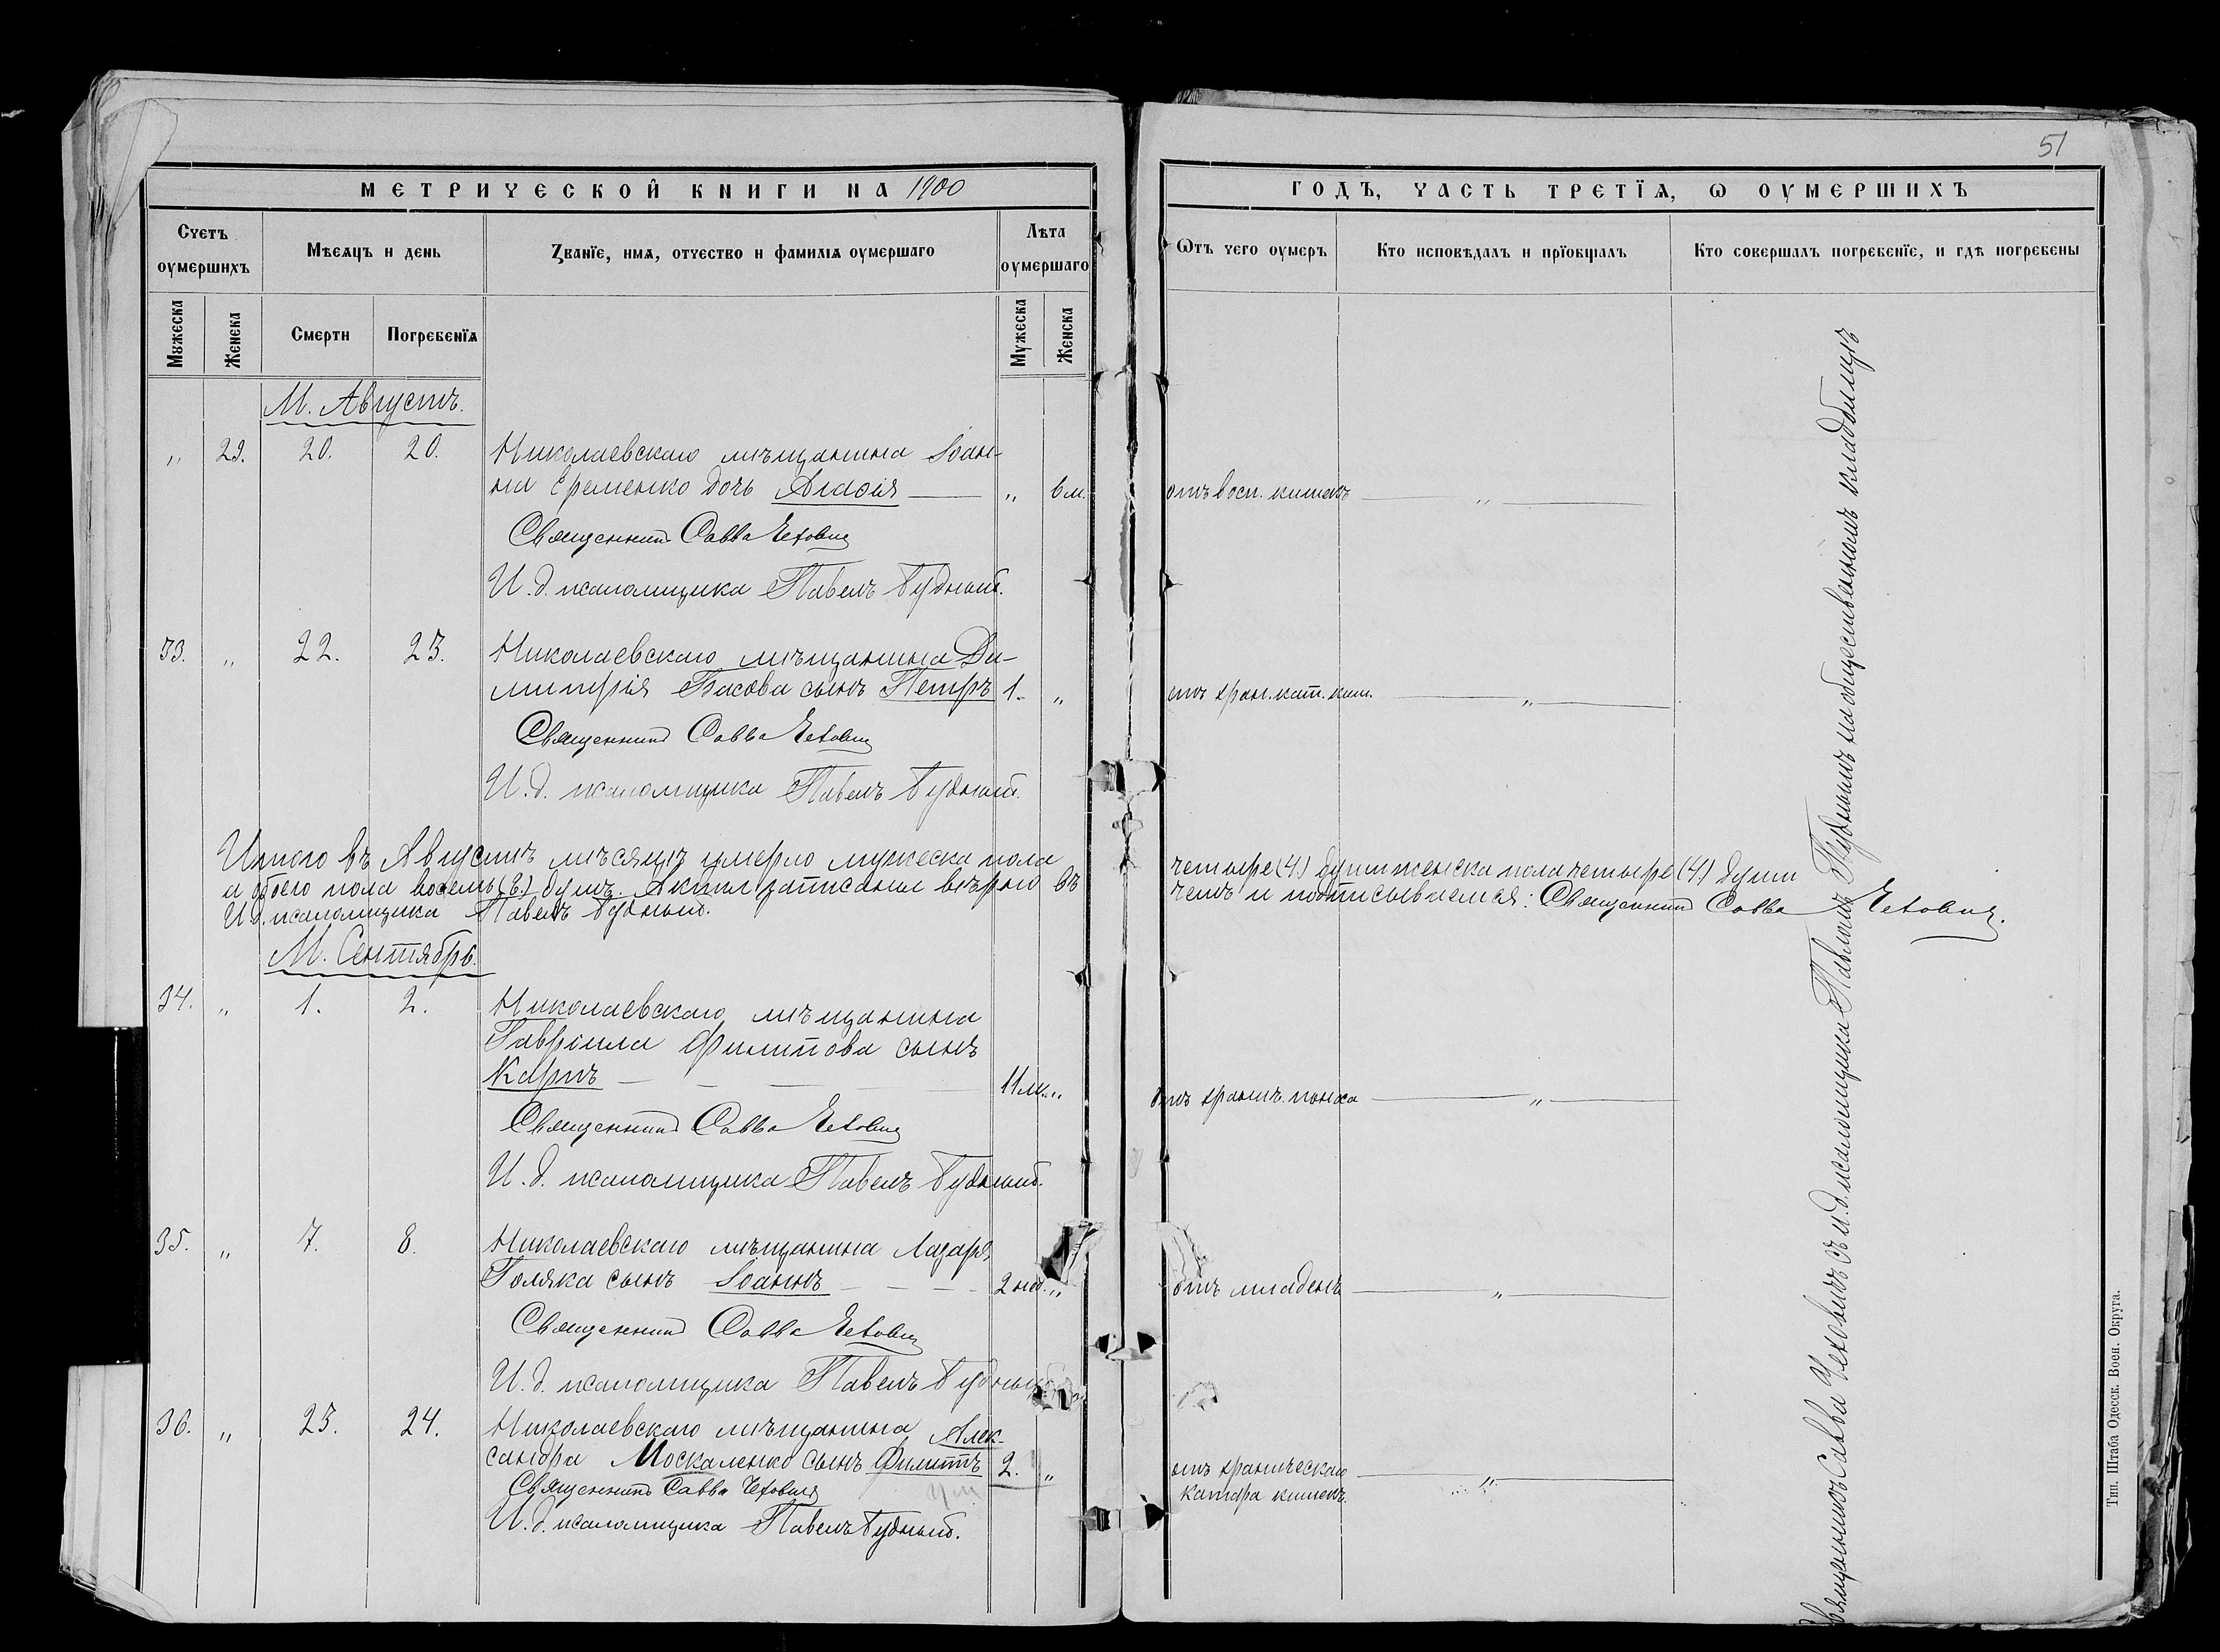 51
МЕТРИЧЕСКОЙ КНИГИ НА 1900
ГОДЪ, ЧАСТЬ ТРЕТЇѦ, Ѡ ОУМЕРШИХЪ
Счетъ оумершихъ
Мѣсѧцъ и день
Званїе, имѧ, отчество и фамилїѧ оумершаго
Лѣта оумершаго
Ѿтъ чего оумеръ
Кто исповѣдалъ и прїобщалъ
Кто совершалъ погребенїе, и гдѣ погребены
Мужеска
Женска
Смерти
Погребенїѧ
Мужеска
Женска
М. Августъ.
„ 29. 20. 20. Николаевскаго мѣщанина Іоан-
на Еременко дочь Агафія „ 6 м. отъ восп. кишекъ „
Священникъ Савва Чехович
И. д. псаломщика Павелъ Будный.
33. „ 22. 23. Николаевскаго мѣщанина Ди-
митрія Басова сынъ Петръ 1. „ отъ хрон. кат. киш. „
Священникъ Савва Чехович
И. д. псаломщика Павелъ Будный.
Итого въ Августѣ мѣсяцѣ умерло мужеска пола четыре (4) души женска пола четыре (4) души
а обоего пола восемь (8.) душъ. Акты записаны вѣрно въ чемъ и подписываемся: Священникъ Савва Чехович.
И. д. псаломщика Павелъ Будный.
М. Сентябрь.
34. „ 1. 2. Николаевскаго мѣщанина
Гавріила Филипова сынъ
Карпъ 11 м. „ отъ хронич. поноса „
Священникъ Савва Чехович
И. д. псаломщика Павелъ Будный.
35. „ 7. 8. Николаевскаго мѣщанина Лазаря
Голяка сынъ Іоаннъ 2 нед. „ отъ младенч. „
Священникъ Савва Чехович
И. д. псаломщика Павелъ Будный
36. „ 23. 24. Николаевскаго мѣщанина Алек-
сандра Москаленко сынъ Филиппъ 2. „ отъ хроническаго „
Священникъ Савва Чеховичъ катара кишекъ.
И. д. псаломщика Павелъ Будный.
Священникъ Савва Чеховичъ съ и. д. псаломщика Павломъ Буднымъ на общественномъ кладбищѣ
Тип. Штаба Одесск. Воен. Округа.